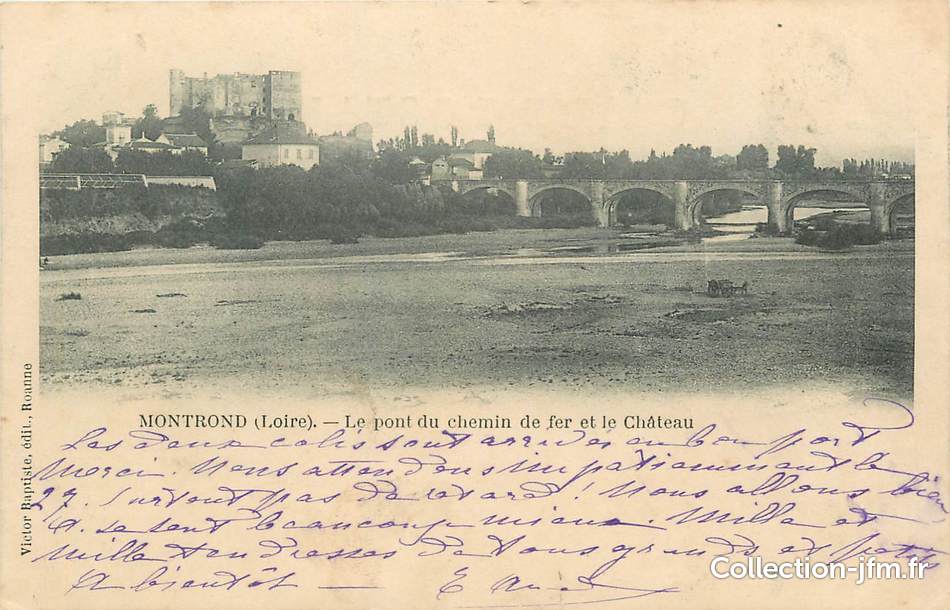 MONTROND (Loire). — Le pont du chemin de fer et le Château
Victor Baptiste, édit., Roanne
Les deux colis sont arrivés en bon port
Merci. Nous attendons impatiemment le
27. Surtout pas de retard! Nous allons bien
A. se sent beaucoup mieux. Mille et
mille tendresses de tous grands et petits
A bientôt —
Collection-jfm.fr